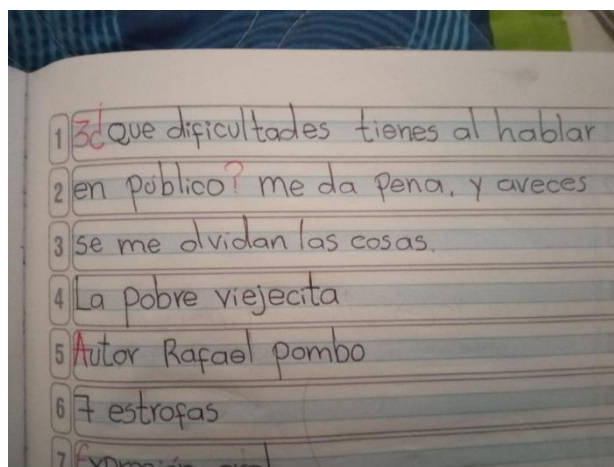 1 3d ¿Que dificultades tienes al hablar
2 en público? me da pena, y aveces
3 se me olvidan las cosas.
4 La pobre viejecita
5 Autor Rafael pombo
6 7 estrofas
7